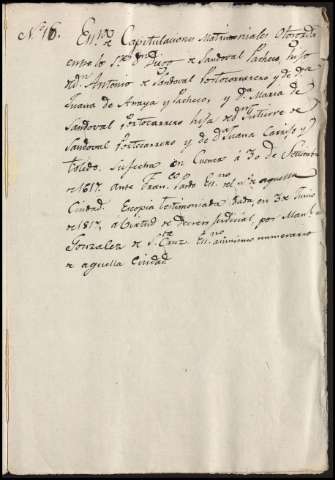 Nº 16. En.ra de Capitulaciones Matrimoniales Otorgada
entre los S.res D.n Diego de Sandoval Pacheco, hijo
de D.n Antonio de Sandoval Portocarrero y de D.a
Juana de Amaya y Pacheco, y D.a Maria de
Sandoval Portocarrero hija de D.n Gutierre de
Sandoval Portocarrero y de D.a Juana Carrillo y
Toledo. Su fecha en Cuenca á 30 de Setiembre
de 1617. ante Fran.co Pardo En.no del n.o de aquella
Ciudad. Es copia testimoniada dada en 3 de Junio
de 1817, á Virtud de decreto judicial, por Man.l
Gonzalez de S.ta Cruz En.no asimismo numerario
de aquella Ciudad